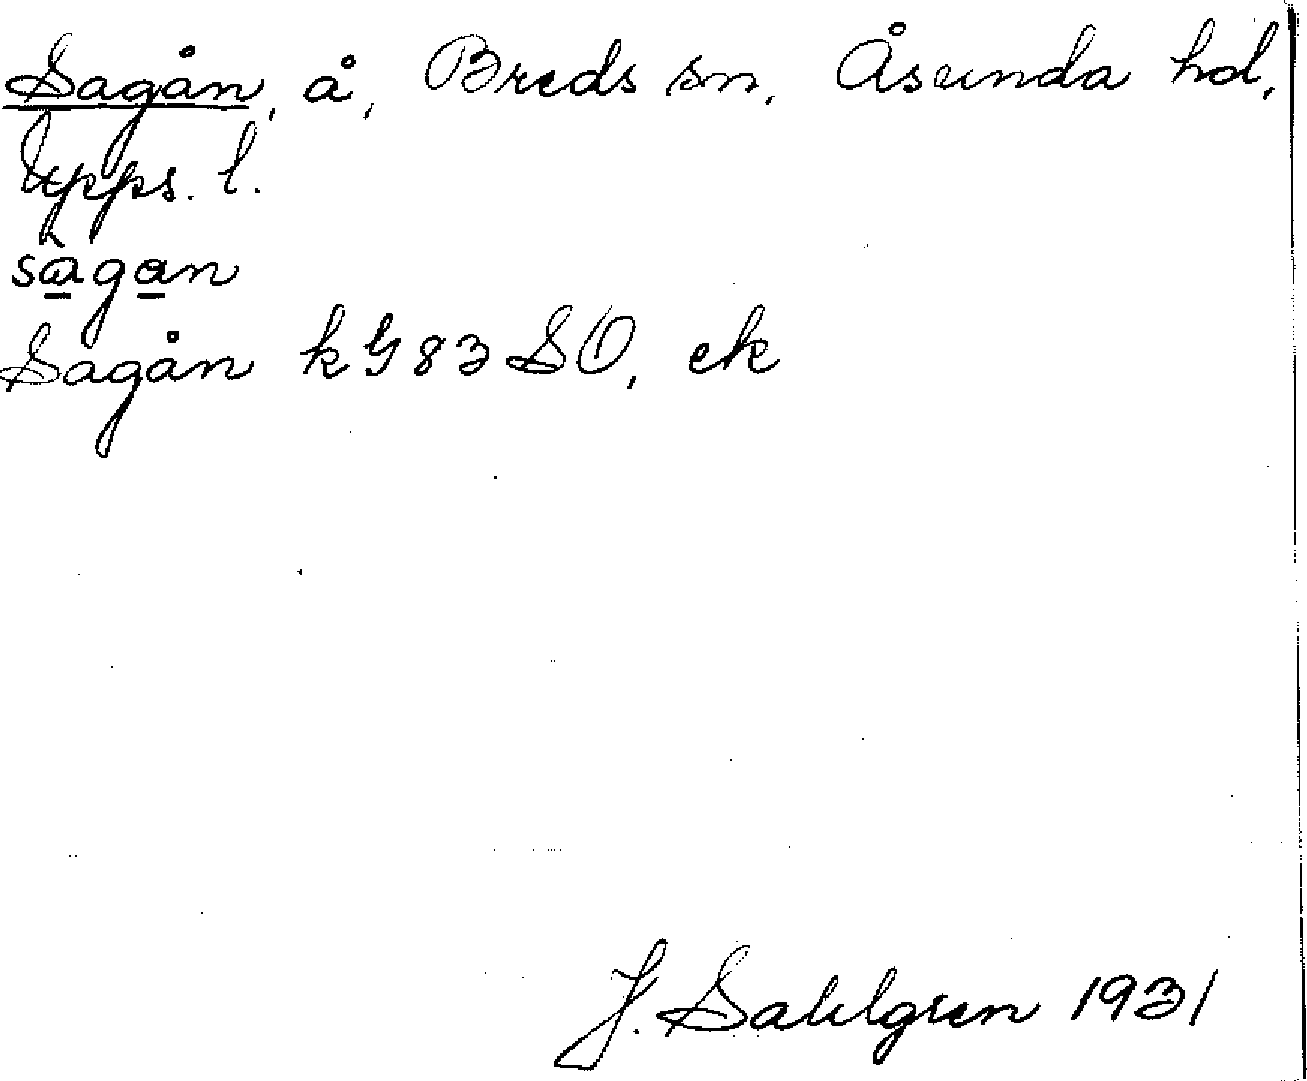 Sagån, å, Breds sn, Åsunda hd,
Upps. l.
sàgan
Sagån k G 83 SO, ek
J. Sahlgren 1931